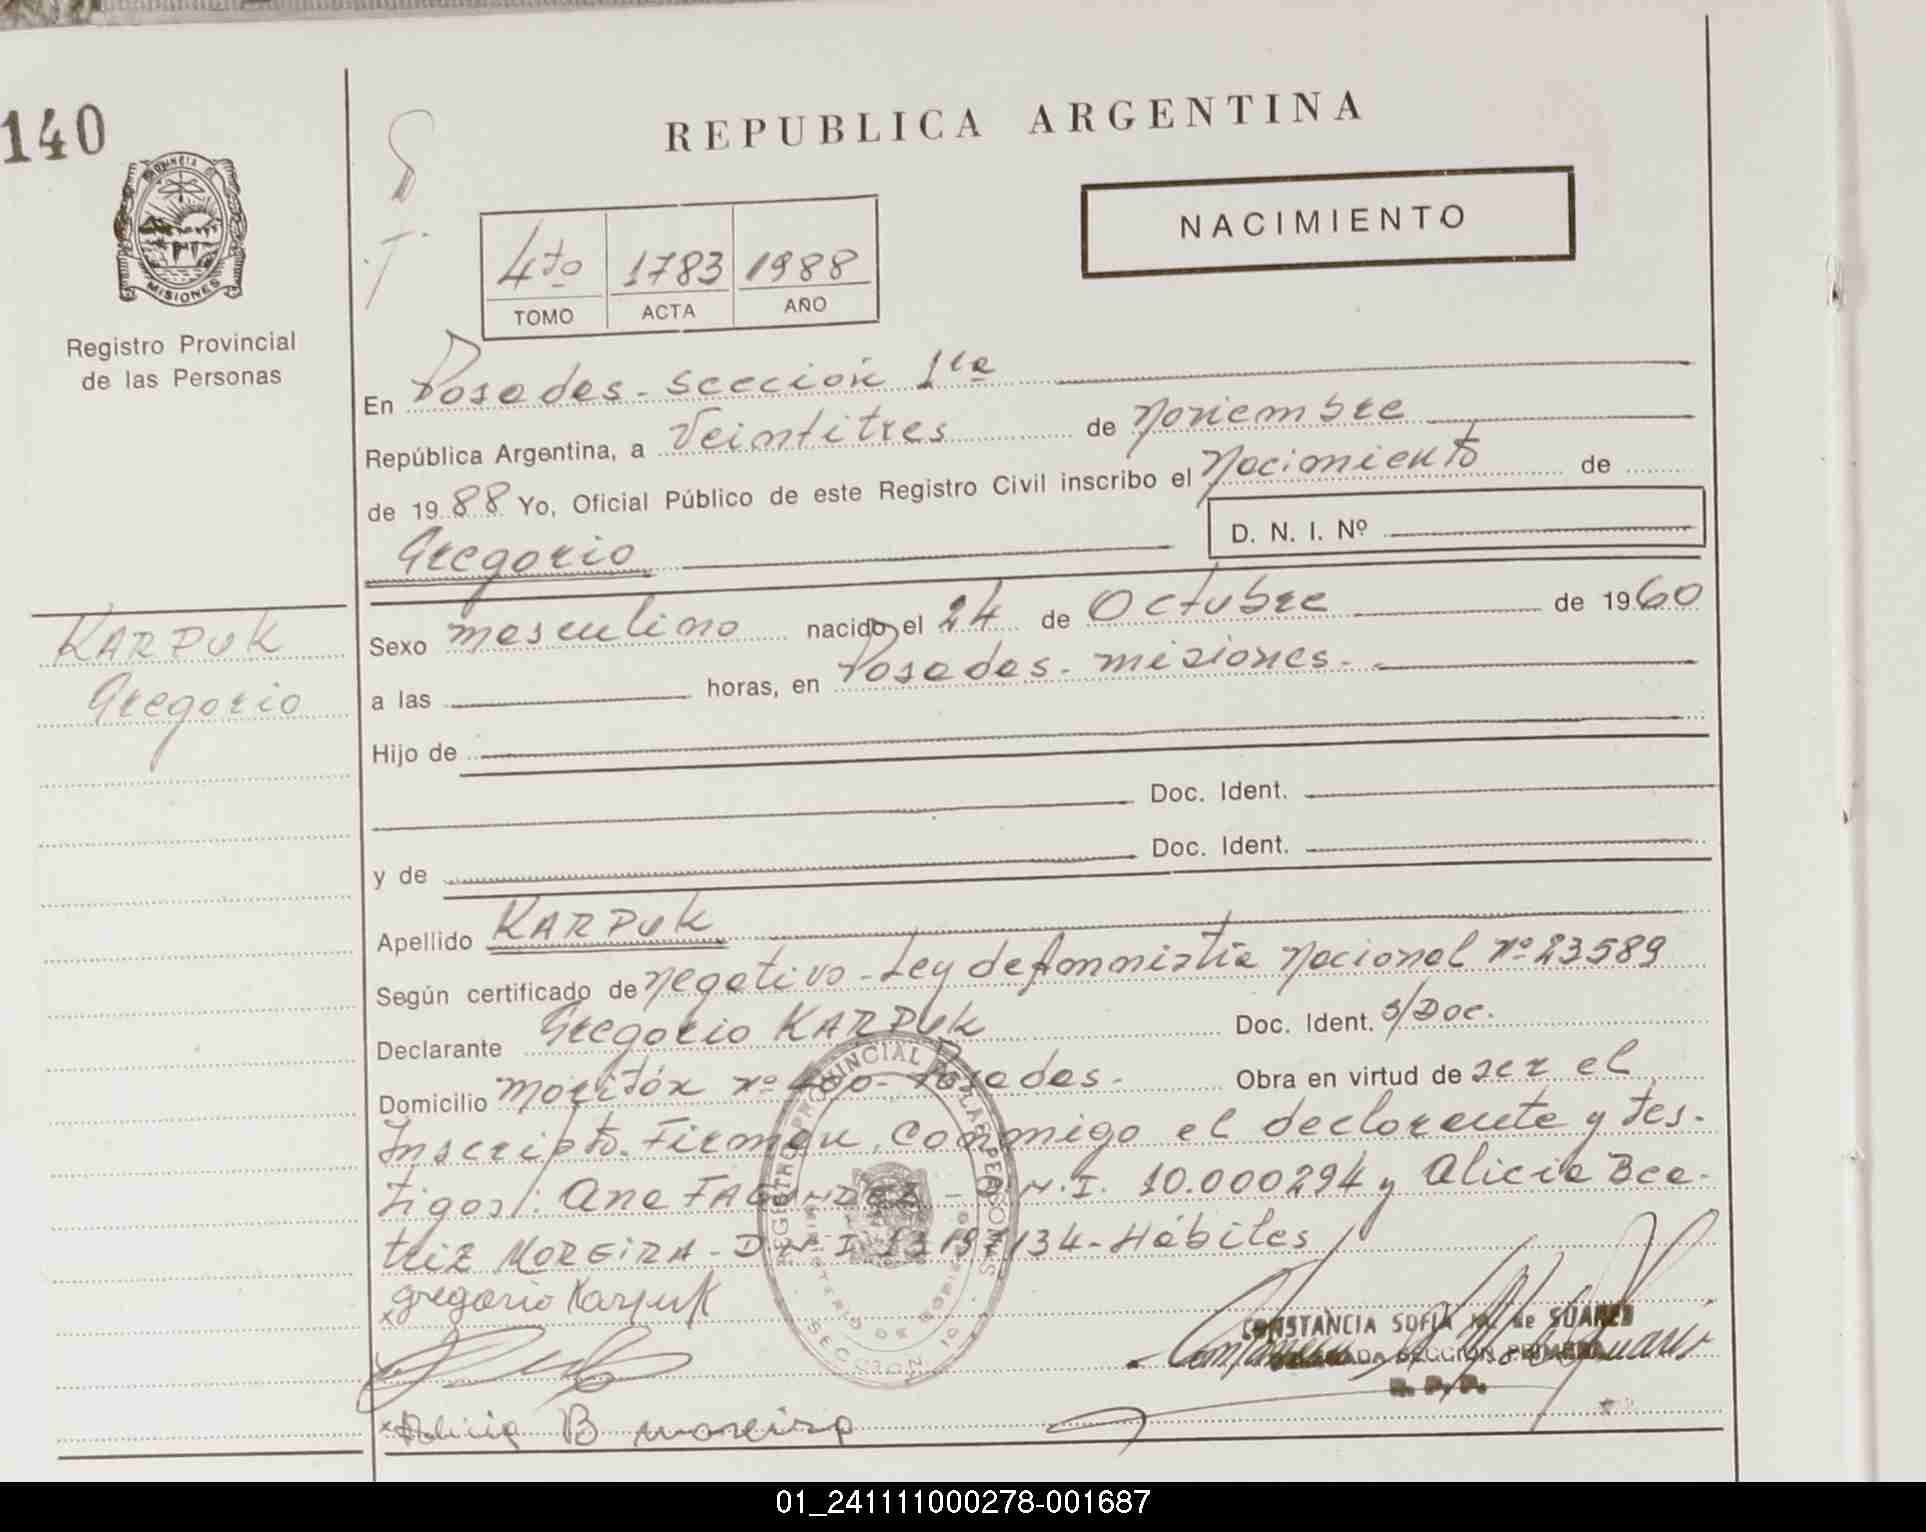 140
REPUBLICA ARGENTINA
PROVINCIA
MISIONES
Registro Provincial
de las Personas
4to 1783 1988
TOMO ACTA AÑO
NACIMIENTO
En Posadas - sección 1ra
República Argentina, a Veintitres de Noviembre
de 1988 Yo, Oficial Público de este Registro Civil inscribo el Nacimiento de
Gregorio D. N. I. Nº
KARPUK
Gregorio
Sexo masculino nacido el 24 de Octubre de 1960
a las horas, en Posadas - misiones -
Hijo de
Doc. Ident.
y de Doc. Ident.
Apellido KARPUK
Según certificado de negativo - Ley de Ammistia Nacional Nº 23589
Declarante Gregorio KARPUK Doc. Ident. S/Doc.
Domicilio Nº 400 - Posadas - Obra en virtud de ser el
Inscripto. Firman, Conmigo el declarante y tes-
tigos: Ana FAGUNDEZ - D.N.I. 10.000294 y Alicia Bea-
triz MOREIRA - DNI - Hábiles
x gregorio Karpuk
REGISTRO PROVINCIAL DE LAS PERSONAS
MINISTERIO DE GOBIERNO
SECCION 1a
CONSTANCIA SOFIA M. de SUAREZ
SECCION PRIMERA
R. P. P.
x Alicia B moreira
01_241111000278-001687